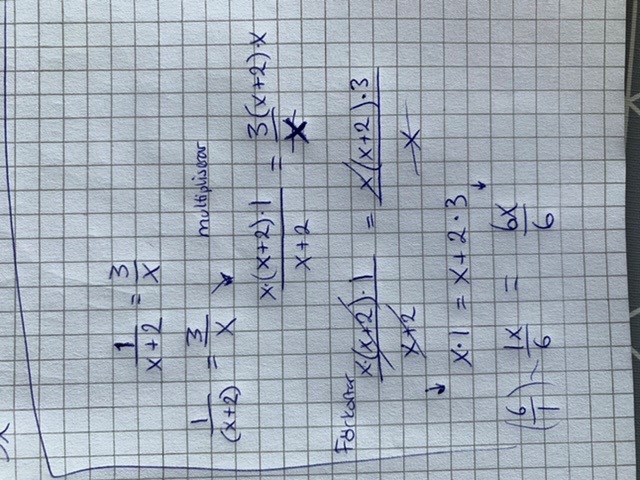 1/(x+2) = 3/x
1/(x+2) = 3/x multipliserar
x·(x+2)·1/(x+2) = 3(x+2)·x/x
Förkortar
x·(x+2)·1/(x+2) = x(x+2)·3/x
x·1 = x+2·3
(6/1) 1x/6 = 6x/6